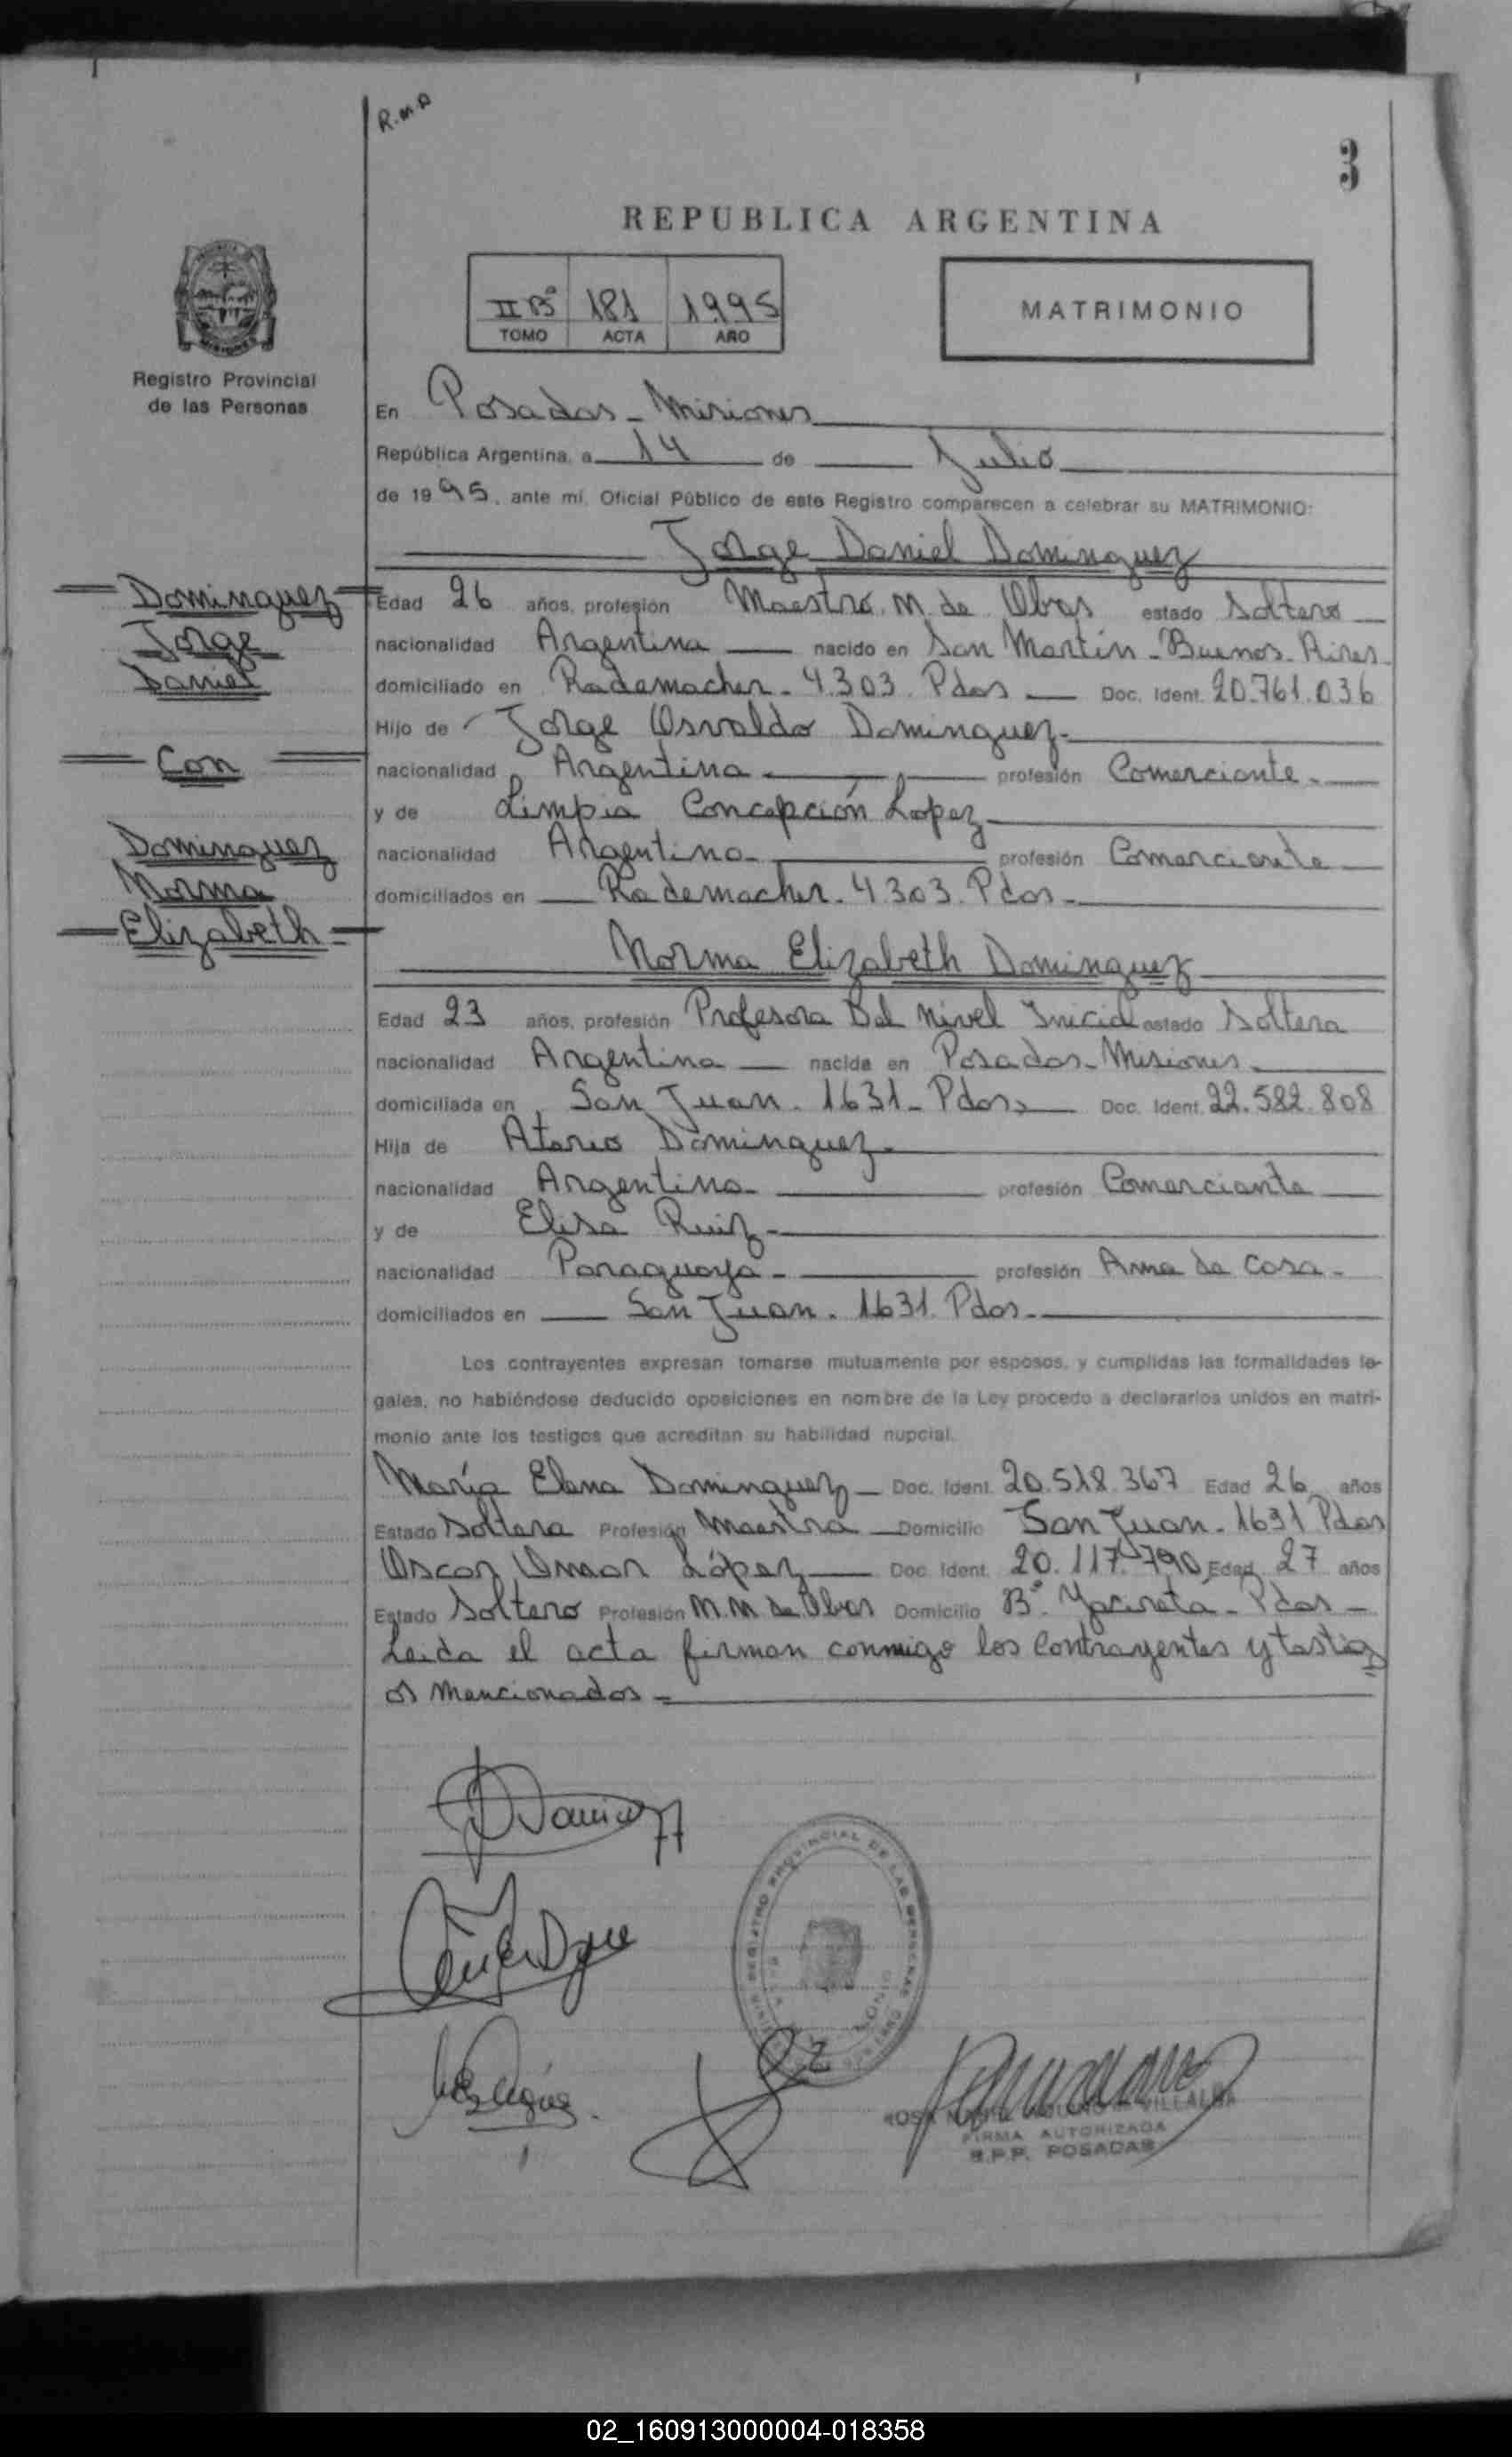 R.M.A
3
REPUBLICA ARGENTINA
II Bº 181 1995
TOMO ACTA AÑO
MATRIMONIO
Registro Provincial
de las Personas
En Posadas - Misiones
República Argentina, a 14 de Julio
de 1995, ante mí, Oficial Público de este Registro comparecen a celebrar su MATRIMONIO:
Jorge Daniel Dominguez
Dominguez
Jorge
Daniel
Con
Dominguez
Norma
Elizabeth
Edad 26 años, profesión Maestro M. de Obras estado Soltero
nacionalidad Argentina nacido en San Martín - Buenos - Aires
domiciliado en Rademacher - 4.303. Pdas Doc. Ident. 20.761.036
Hijo de Jorge Osvaldo Dominguez.
nacionalidad Argentina profesión Comerciante.
y de Limpia Concepción Lopez
nacionalidad Argentina profesión Comerciante
domiciliados en Rademacher. 4.303. Pdas.
Norma Elizabeth Dominguez
Edad 23 años, profesión Profesora Del Nivel Inicial estado Soltera
nacionalidad Argentina nacida en Posadas - Misiones
domiciliada en San Juan. 1631 - Pdas Doc. Ident. 22.582.808
Hija de Dominguez
nacionalidad Argentina profesión Comerciante
y de Elisa Ruiz
nacionalidad Paraguaya profesión Ama de Casa
domiciliados en San Juan. 1631. Pdas.
Los contrayentes expresan tomarse mutuamente por esposos, y cumplidas las formalidades le-
gales, no habiéndose deducido oposiciones en nombre de la Ley procedo a declararlos unidos en matri-
monio ante los testigos que acreditan su habilidad nupcial.
María Elena Dominguez Doc. Ident. 20.518.367 Edad 26 años
Estado Soltera Profesión Maestra Domicilio San Juan. 1631 Pdas
Oscar Omar López Doc. Ident. 20.117.790 Edad 27 años
Estado Soltero Profesión M.M de Obras Domicilio Bº. Yacireta - Pdas
Leida el acta firman conmigo los contrayentes y testig
os mencionados
REGISTRO PROVINCIAL DE LAS PERSONAS
VILLALBA
FIRMA AUTORIZADA
R.P.P. POSADAS
02_160913000004-018358